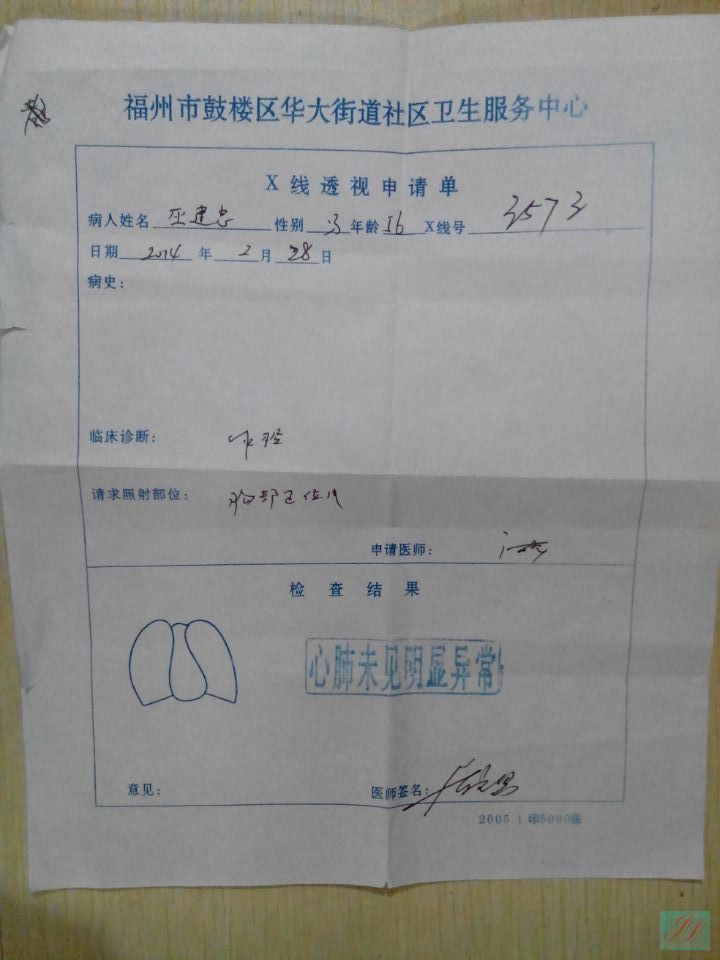 福州市鼓楼区华大街道社区卫生服务中心
X线透视申请单
病人姓名 巫建忠 性别 男 年龄 56 X线号 3573
日期 2014 年 2 月 28 日
病史：
临床诊断： 体检
请求照射部位： 胸部正位片
申请医师：
检查结果
心肺未见明显异常
意见：
医师签名：
2005.1.印5000张